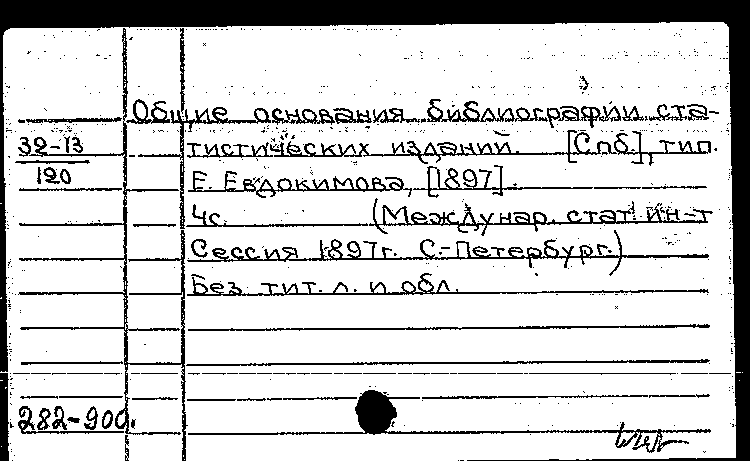 Общие основания библиографии ста-
32-13
120
тистических изданий. [Спб], тип.
Е. Евдокимова, [1897].
4с. (Междунар. стат. ин-т
Сессия 1897г. С.-Петербург.)
Без тит. л. и обл.
282-900.